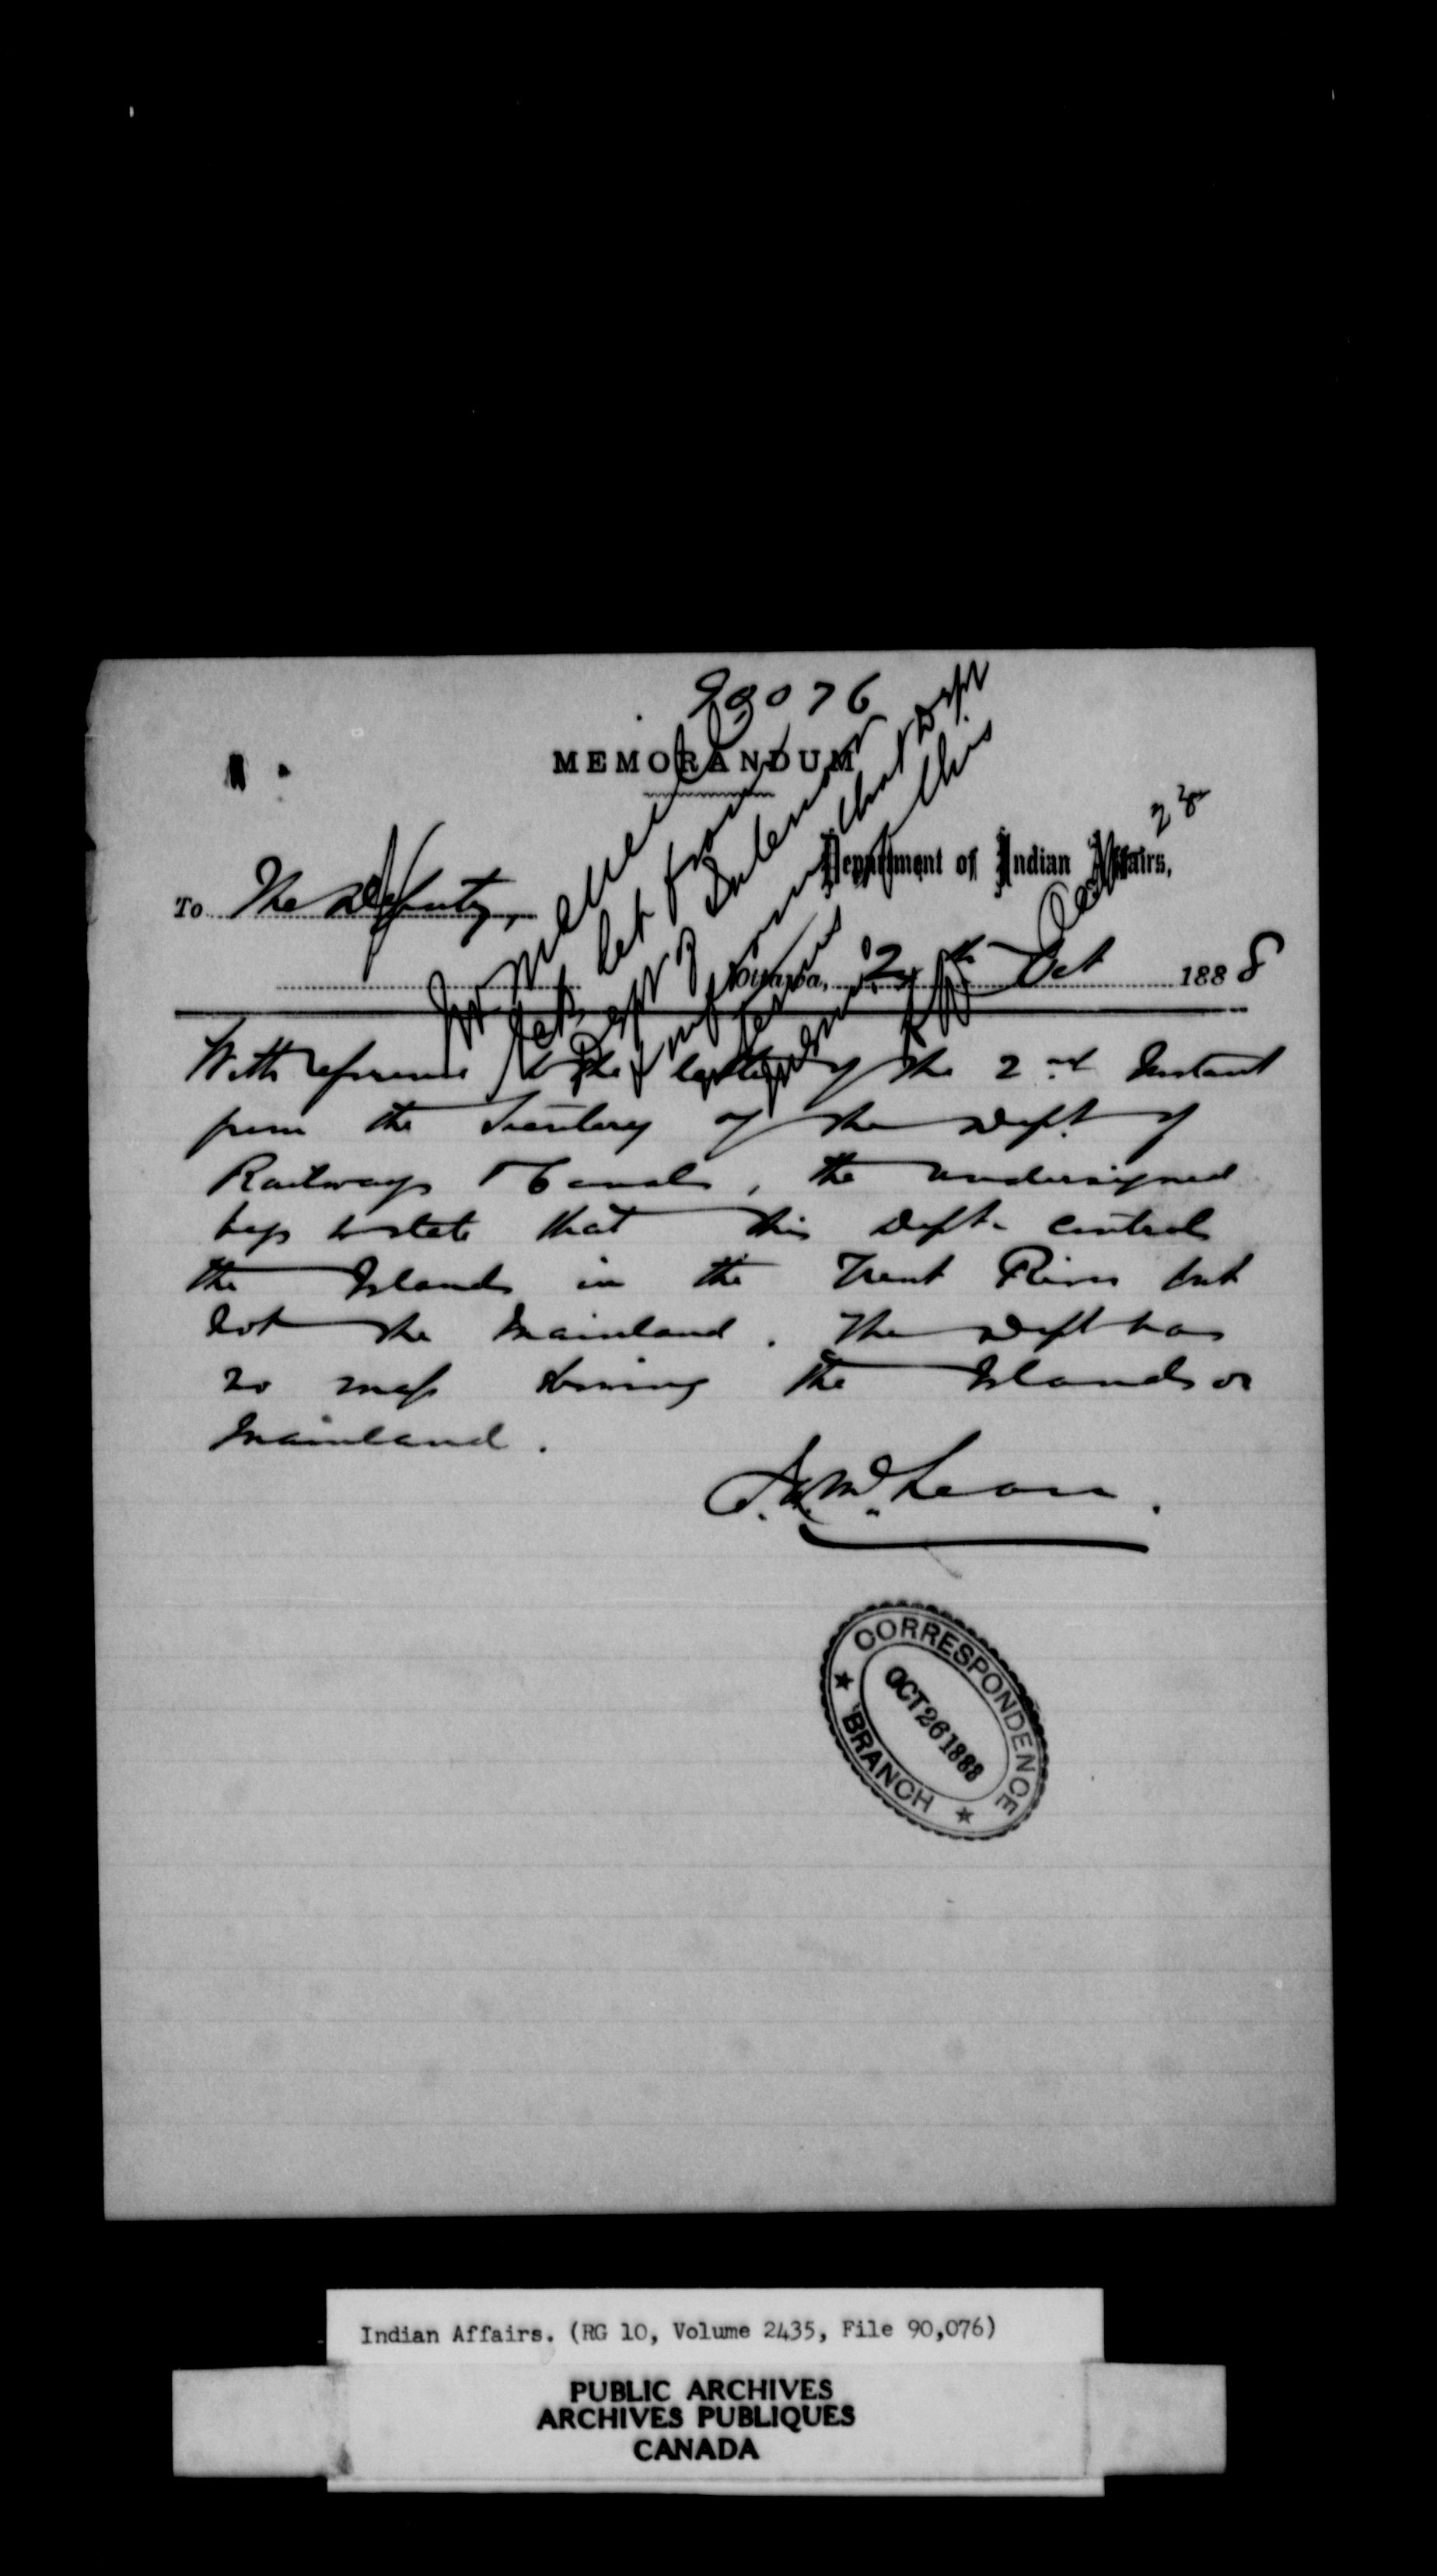 90076
MEMORANDUM
Department of Indian Affairs,
To The Deputy,
Ottawa, 24th Oct 1888
With reference to the letter of the 2nd Instant
from the Secretary of the Dept. of
Railways & Canals, the undersigned
begs to state that this Dept. controls
the Islands in the Trent River but
not the Mainland. The Dept has
no map showing the Islands or
Mainland.
let from
Dept of Interior
inform that Dept
this
Oct
J.D. McLean.
CORRESPONDENCE
OCT 26 1888
BRANCH
Indian Affairs. (RG 10, Volume 2435, File 90,076)
PUBLIC ARCHIVES
ARCHIVES PUBLIQUES
CANADA